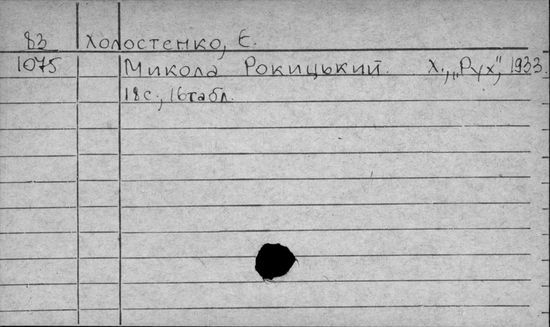 83 Холостенко, Є.
1075 Микола Рокицький. Х., „Рух", 1933.
18 с., 16 табл.